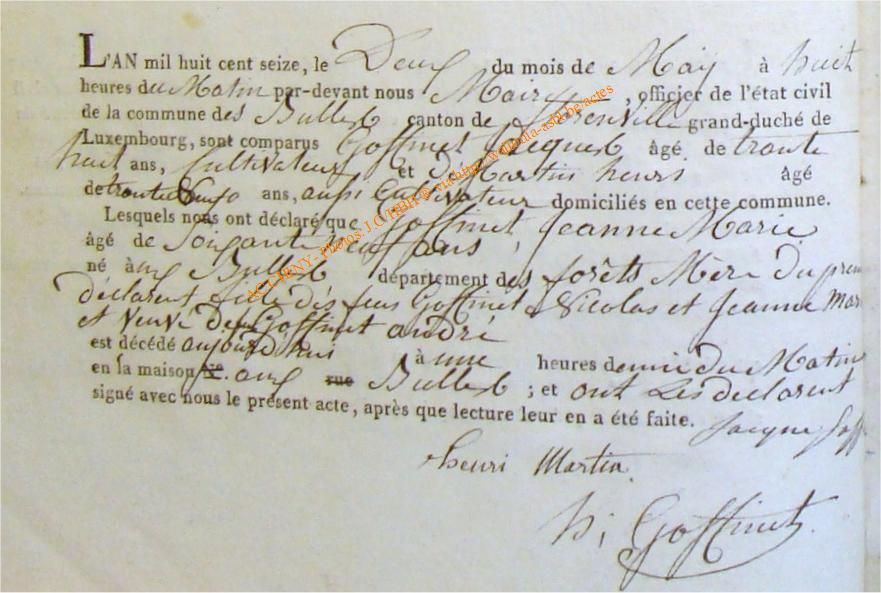 L'AN mil huit cent seize, le Deux du mois de Maÿ à huit
heures du Matin par-devant nous Maire, officier de l'état civil
de la commune des Bulles canton de florenville grand-duché de
Luxembourg, sont comparus Goffinet Jacques âgé de trante
huit ans, Cultivateur et Martin henri âgé
de ans, aussi Cultivateur domiciliés en cette commune.
Lesquels nous ont déclaré que Goffinet Jeanne Marie
âgé de Soixante ans,
né à Bulles département des forêts Mère du
déclarent fille des feus Goffinet Nicolas et Jeanne
et veuve de Goffinet andré
est décédé aujourdhui à une heures demie du Matin
en la maison No. rue Bulles ; et ont Les declarent
signé avec nous le présent acte, après que lecture leur en a été faite.
Jacque
henri Martin
Goffinet